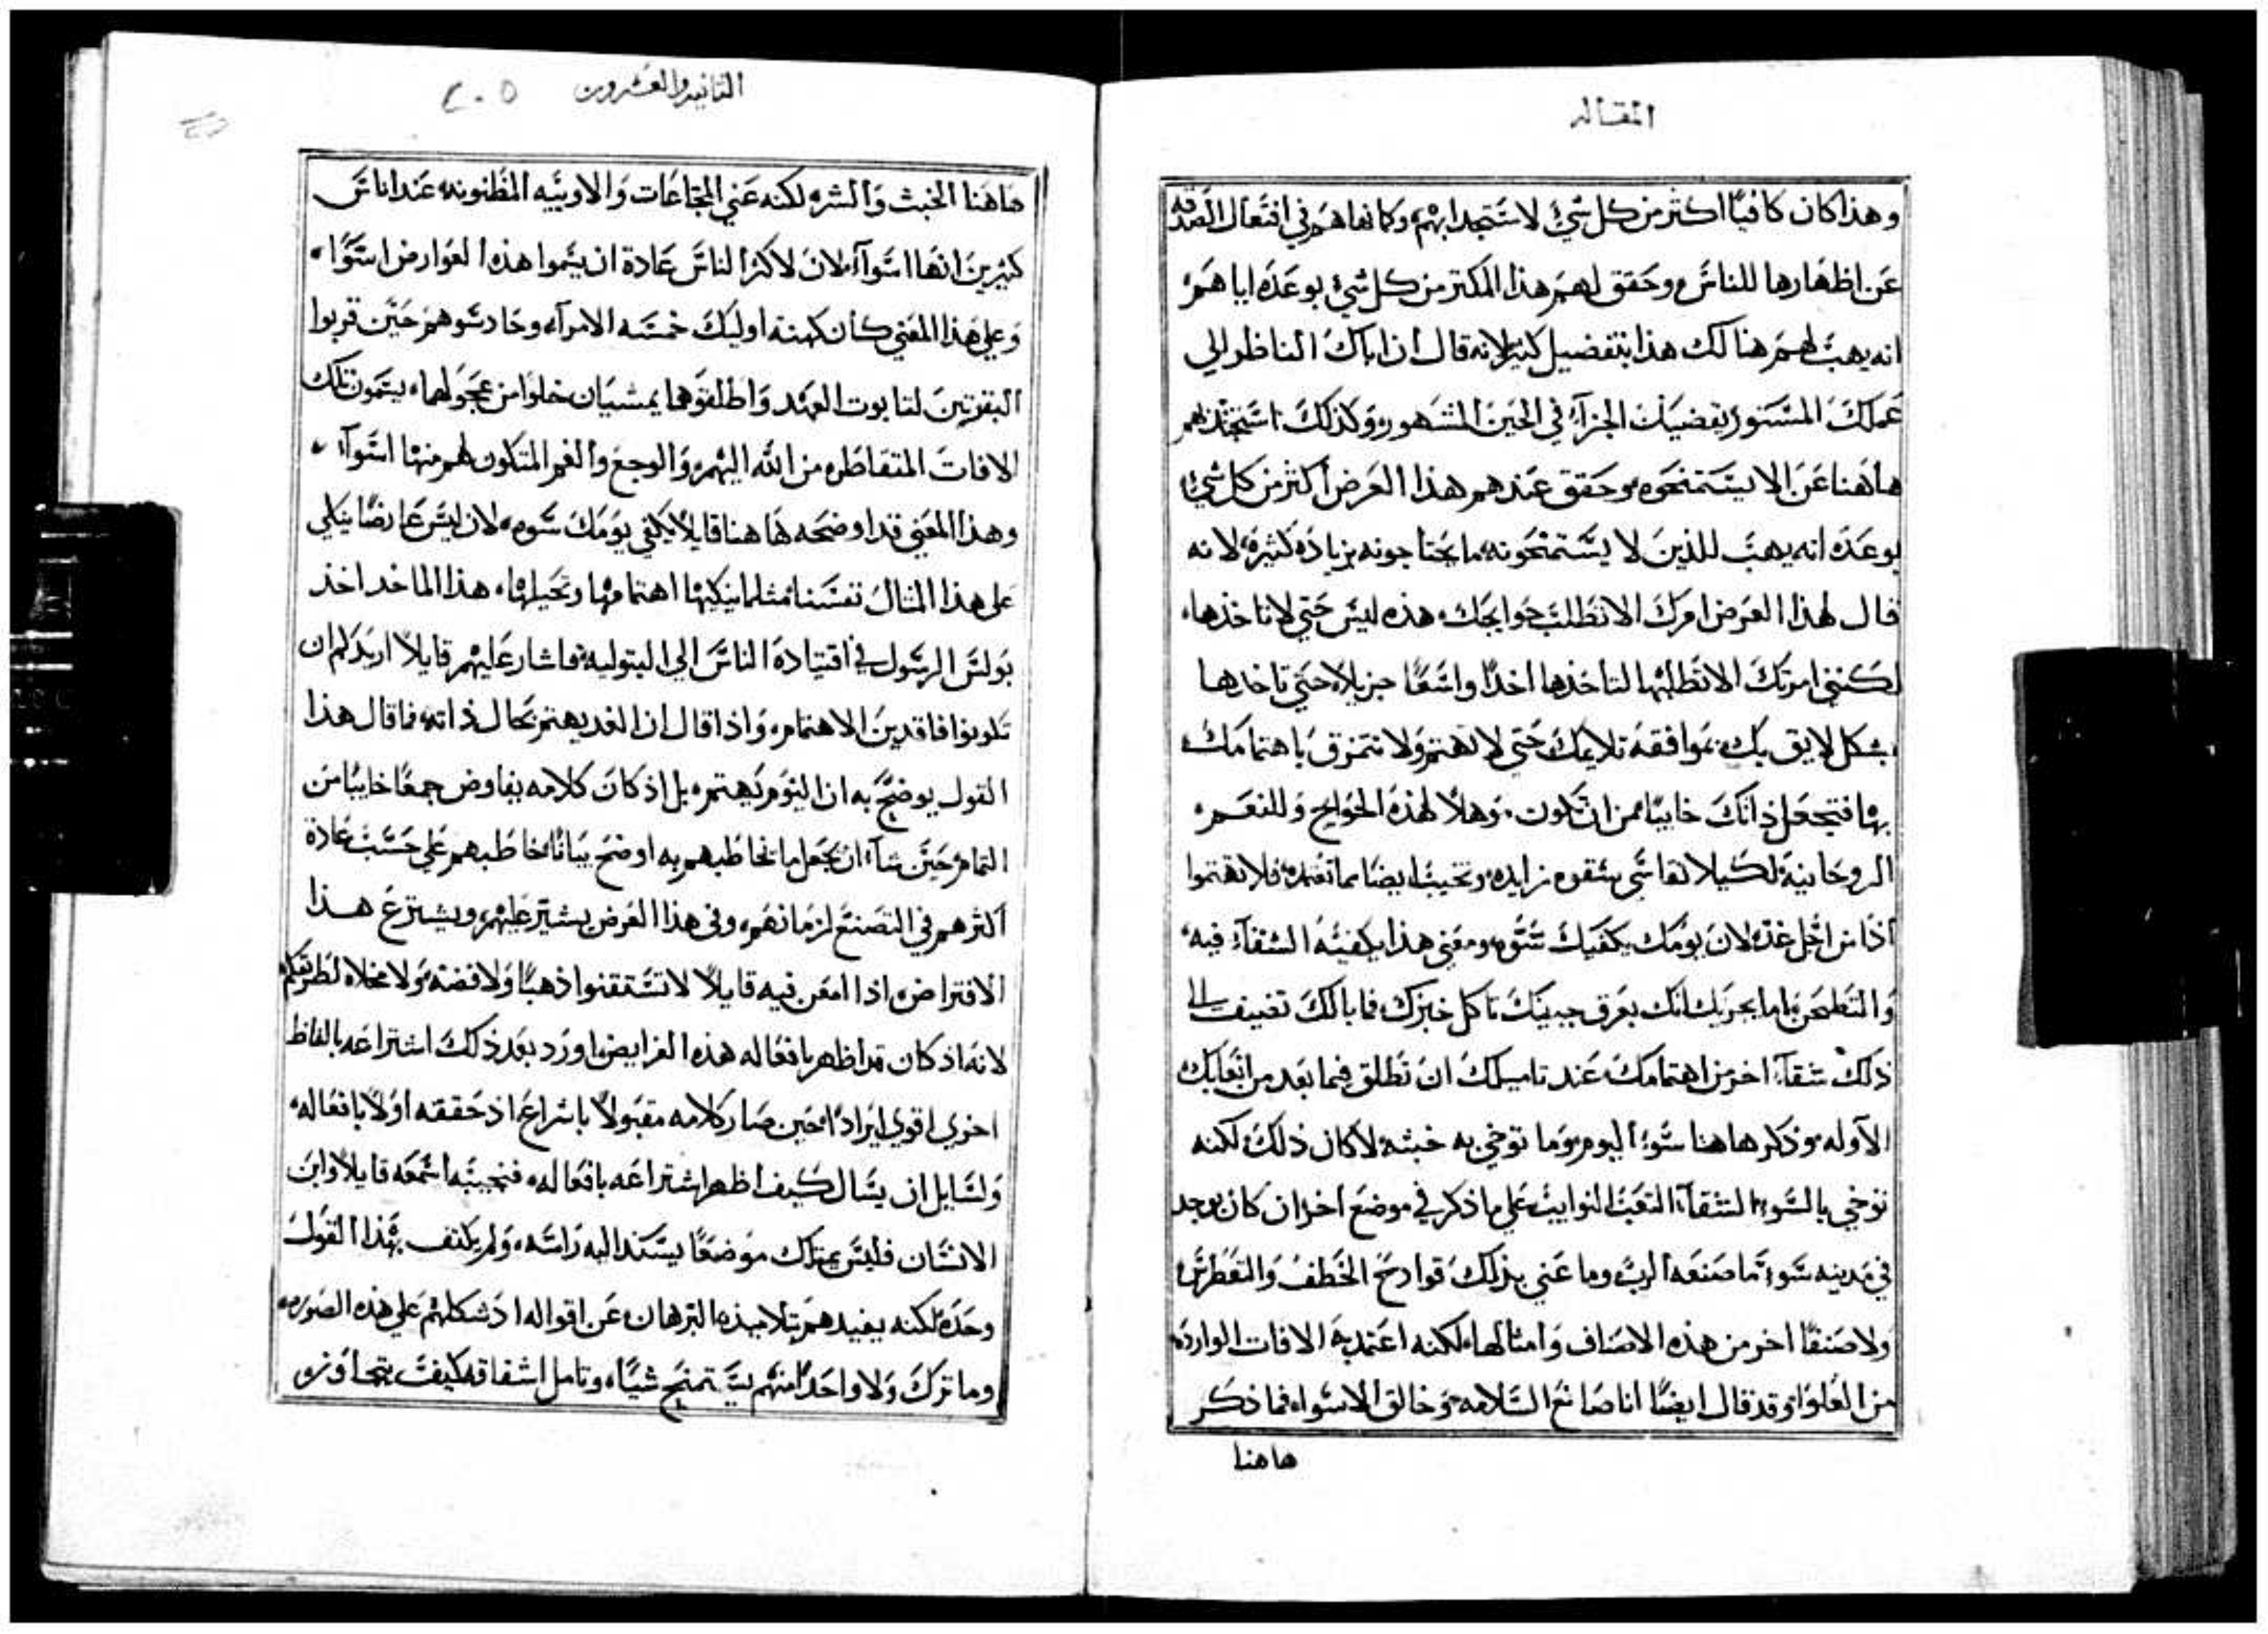 المقاله
وهذا كان كافيًا اكثر من كل شيء لاستنجدابهم وكما نهاهم في افتعال الصدقه
عن اظهارها للناس وحقق لهم هذا المكتر من كل شيء بوعده اياهم
انه يهب لهم هنالك هذا بتفضيل كثير لانه قال ان اباك الناظر الي
عملك المستور الجزآء في الحين المشهور وكذلك هم
هاهنا عن الا يستمنحوه وحقق عندهم هذا الغرض اكثر من كل شيء
بوعده انه يهب للذين لا يستمنحونه ما يحتاجونه بزياده كثيره لانه
قال لهذا الغرض امرك الا تطلب حوايجك هذه ليس حتي لا تاخذها
لكنني امرتك الا تطلبها لتاخذها اخذًا واسعًا جزيلا حتي تاخدها
بشكل لايق بك بموافقه تلايمك حتي لا تهتم ولا تتمزق باهتمامك
بها فتجعل ذاتك خايبًا من ان تكون وهلًا لهذه الحوايج وللنعم
الروحانيه لكيلا تقاسي شقوه زايده وتخيب ايضا مما تقدمه فلا تهتموا
اذًا من اجل غد لان يومك يكفيك سوه ومعني هذا يكفيه الشقآء فيه
والتطحن اما يجزيك انك بعرق جبينك تاكل خبزك فما بالك تضيف الى
ذلك شقآء اخر من اهتمامك عند تاميلك ان تطلق فيما بعد من اتعابك
الآوله وذكر هاهنا سوء اليوم وما توخي به خبثه لا كان ذلك لكنه
توخي بالسوء الشقآء التعب النوايب علي ما ذكر في موضع اخر ان كان يوجد
في مدينه سوء ما صنعه الرب وما عني بذلك قوادح الخطف والتغطرس
ولا صنفًا اخر من هذه الاصناف وامثالها لكنه اعتمد به الافات الوارده
من العلو وقد قال ايضًا انا صانع السلامه وخالق الاسواء فما ذكر
هاهنا
الثانيه والعشرون ٢٠٥
هاهنا الخبث والشره لكنه عني المجاعات والاوبيه المظنونه عند اناس
كثيرين انها اسوآء لان لاكثر الناس عادة ان يسموا هذه العوارض اسوًاء
وعلي هذا المعني كان كهنة اوليك خمسه الامرآء وحادسوهم حين قربوا
البقرتين لتابوت العهد واطلقوهما يمشيان خلوا من عجولهما يسمون تلك
الافات المتقاطره من الله اليهم والوجع والغم المتكون لهم منها اسوآء
وهذا المعني قد اوضحه هاهنا قايلًا يكفي يومك سوه لان ليس عارضًا ينكي
علي هذا المثال نفسنا مثلما ينكيها اهتمامها وتحيلها هذا الماخد اخذ
بولس الرسول في اقتيادة الناس الي البتوليه فاشار عليهم قايلًا اريدكم ان
تكونوا فاقدين الاهتمام واذا قال ان الغد يهتم بحال ذاته فما قال هذا
القول يوضح به ان اليوم يهتم بل اذ كان كلامه يفاوض جمعًا خايبًا من
التمام حين شآء ان يجعل ما يخاطبهم به اوضح بيانًا خاطبهم علي حسب عادة
اكثرهم في التصنع لزمانهم وفي هذا الغرض يشير عليهم ويشترع هذا
الافتراض اذا امعن فيه قايلًا لا تستقنوا ذهبًا ولا فضه ولا مخلاه لطريقكم
لانه اذ كان قد اظهر بافعاله هذه الفرايض اورد بعد ذلك اشتراعه بالفاظ
اخري اقوي ايرادًا حين صار كلامه مقبولًا باسراع اذ حققه اولًا بافعاله
ولسايل ان يسال كيف اظهر اشتراعه بافعاله فنجيبه اسمعه قايلًا وابن
الانسان فليس يمتلك موضعًا يسند اليه راسه ولم يكتف بهذا القول
وحده لكنه يفيدهم بتلاميذه البرهان عن اقواله اذ شكلهم علي هذه الصوره
وما ترك ولا واحدًا منهم يستمنح شيًا وتامل اشفاقه كيف يتجاوز